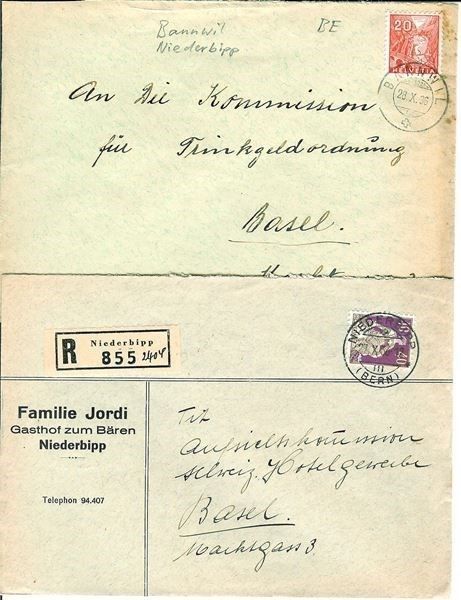 Bannwil
Niederbipp
BE
20
HELVETIA
BANNWIL
28.X.36
An Die Kommission
für Trinkgeldordnung
Basel.
R
Niederbipp
855 2404
NIEDERBIPP
(BERN)
40
Familie Jordi
Gasthof zum Bären
Niederbipp
Telephon 94.407
Tit
Aufsichtskommission
schweiz. Hotelgewerbe
Basel.
Marktgass 3.